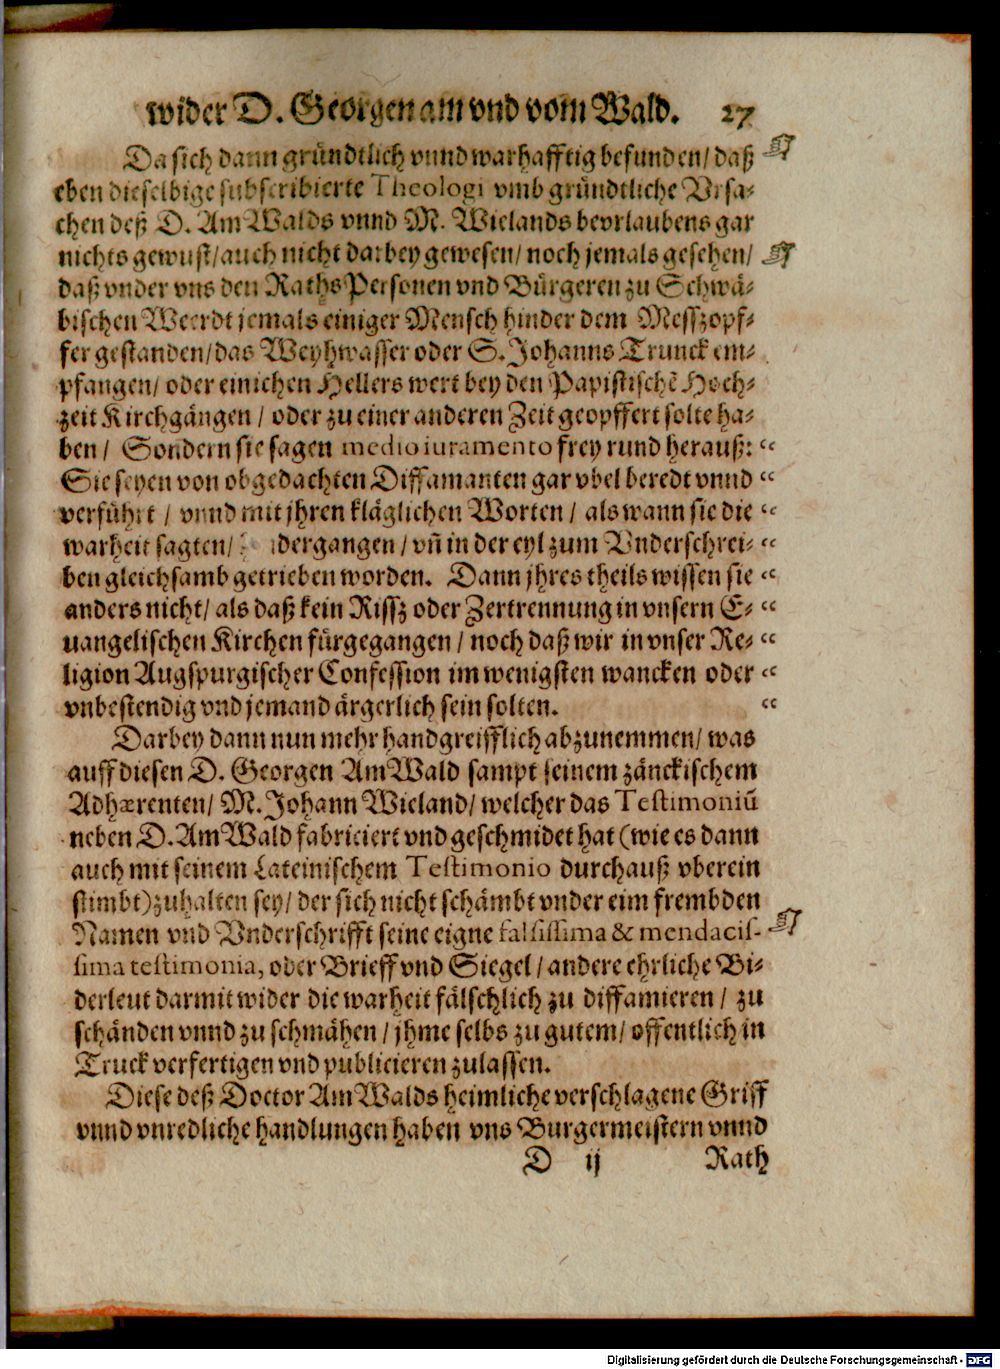 wider D. Georgen am vnd vom Wald. 27
Da sich dann gründtlich vnnd warhafftig befunden/ daß
eben dieselbige subscribierte Theologi vmb gründtliche Vrsa-
chen deß D. Am Walds vnnd M. Wielands bevrlaubens gar
nichts gewust/ auch nicht darbey gewesen/ noch jemals gesehen/
daß vnder vns den Raths Personen vnd Bürgeren zu Schwä-
bischen Weerdt jemals einiger Mensch hinder dem Messzopf-
fer gestanden/ das Weyhwasser oder S. Johanns Trunck em-
pfangen/ oder einichen Hellers wert bey den Papistischẽ Hoch-
zeit Kirchgängen / oder zu einer anderen Zeit geopffert solte ha-
ben / Sondern sie sagen medio iuramento frey rund herauß: “
Sie seyen von obgedachten Diffamanten gar vbel beredt vnnd “
verführt / vnnd mit jhren kläglichen Worten / als wann sie die “
warheit sagten/ dergangen / vñ in der eyl zum Vnderschrei- “
ben gleichsamb getrieben worden. Dann jhres theils wissen sie “
anders nicht/ als daß kein Rissz oder Zertrennung in vnsern E- “
uangelischen Kirchen fürgegangen / noch daß wir in vnser Re- “
ligion Augspurgischer Confession im wenigsten wancken oder “
vnbestendig vnd jemand ärgerlich sein solten. “
Darbey dann nun mehr handgreifflich abzunemmen/ was
auff diesen D. Georgen Am Wald sampt seinem zänckischem
Adhærenten/ M. Johann Wieland/ welcher das Testimoniũ
neben D. Am Wald fabriciert vnd geschmidet hat (wie es dann
auch mit seinem Lateinischem Testimonio durchauß vberein
stimbt) zuhalten sey/ der sich nicht schämbt vnder eim frembden
Namen vnd Vnderschrifft seine eigne falsissima & mendacis-
sima testimonia, oder Brieff vnd Siegel / andere ehrliche Bi-
derleut darmit wider die warheit fälschlich zu diffamieren / zu
schänden vnnd zu schmähen / jhme selbs zu gutem/ offentlich in
Truck verfertigen vnd publicieren zulassen.
Diese deß Doctor Am Walds heimliche verschlagene Griff
vnnd vnredliche handlungen haben vns Burgermeistern vnnd
D ij Rath
Digitalisierung gefördert durch die Deutsche Forschungsgemeinschaft - DFG